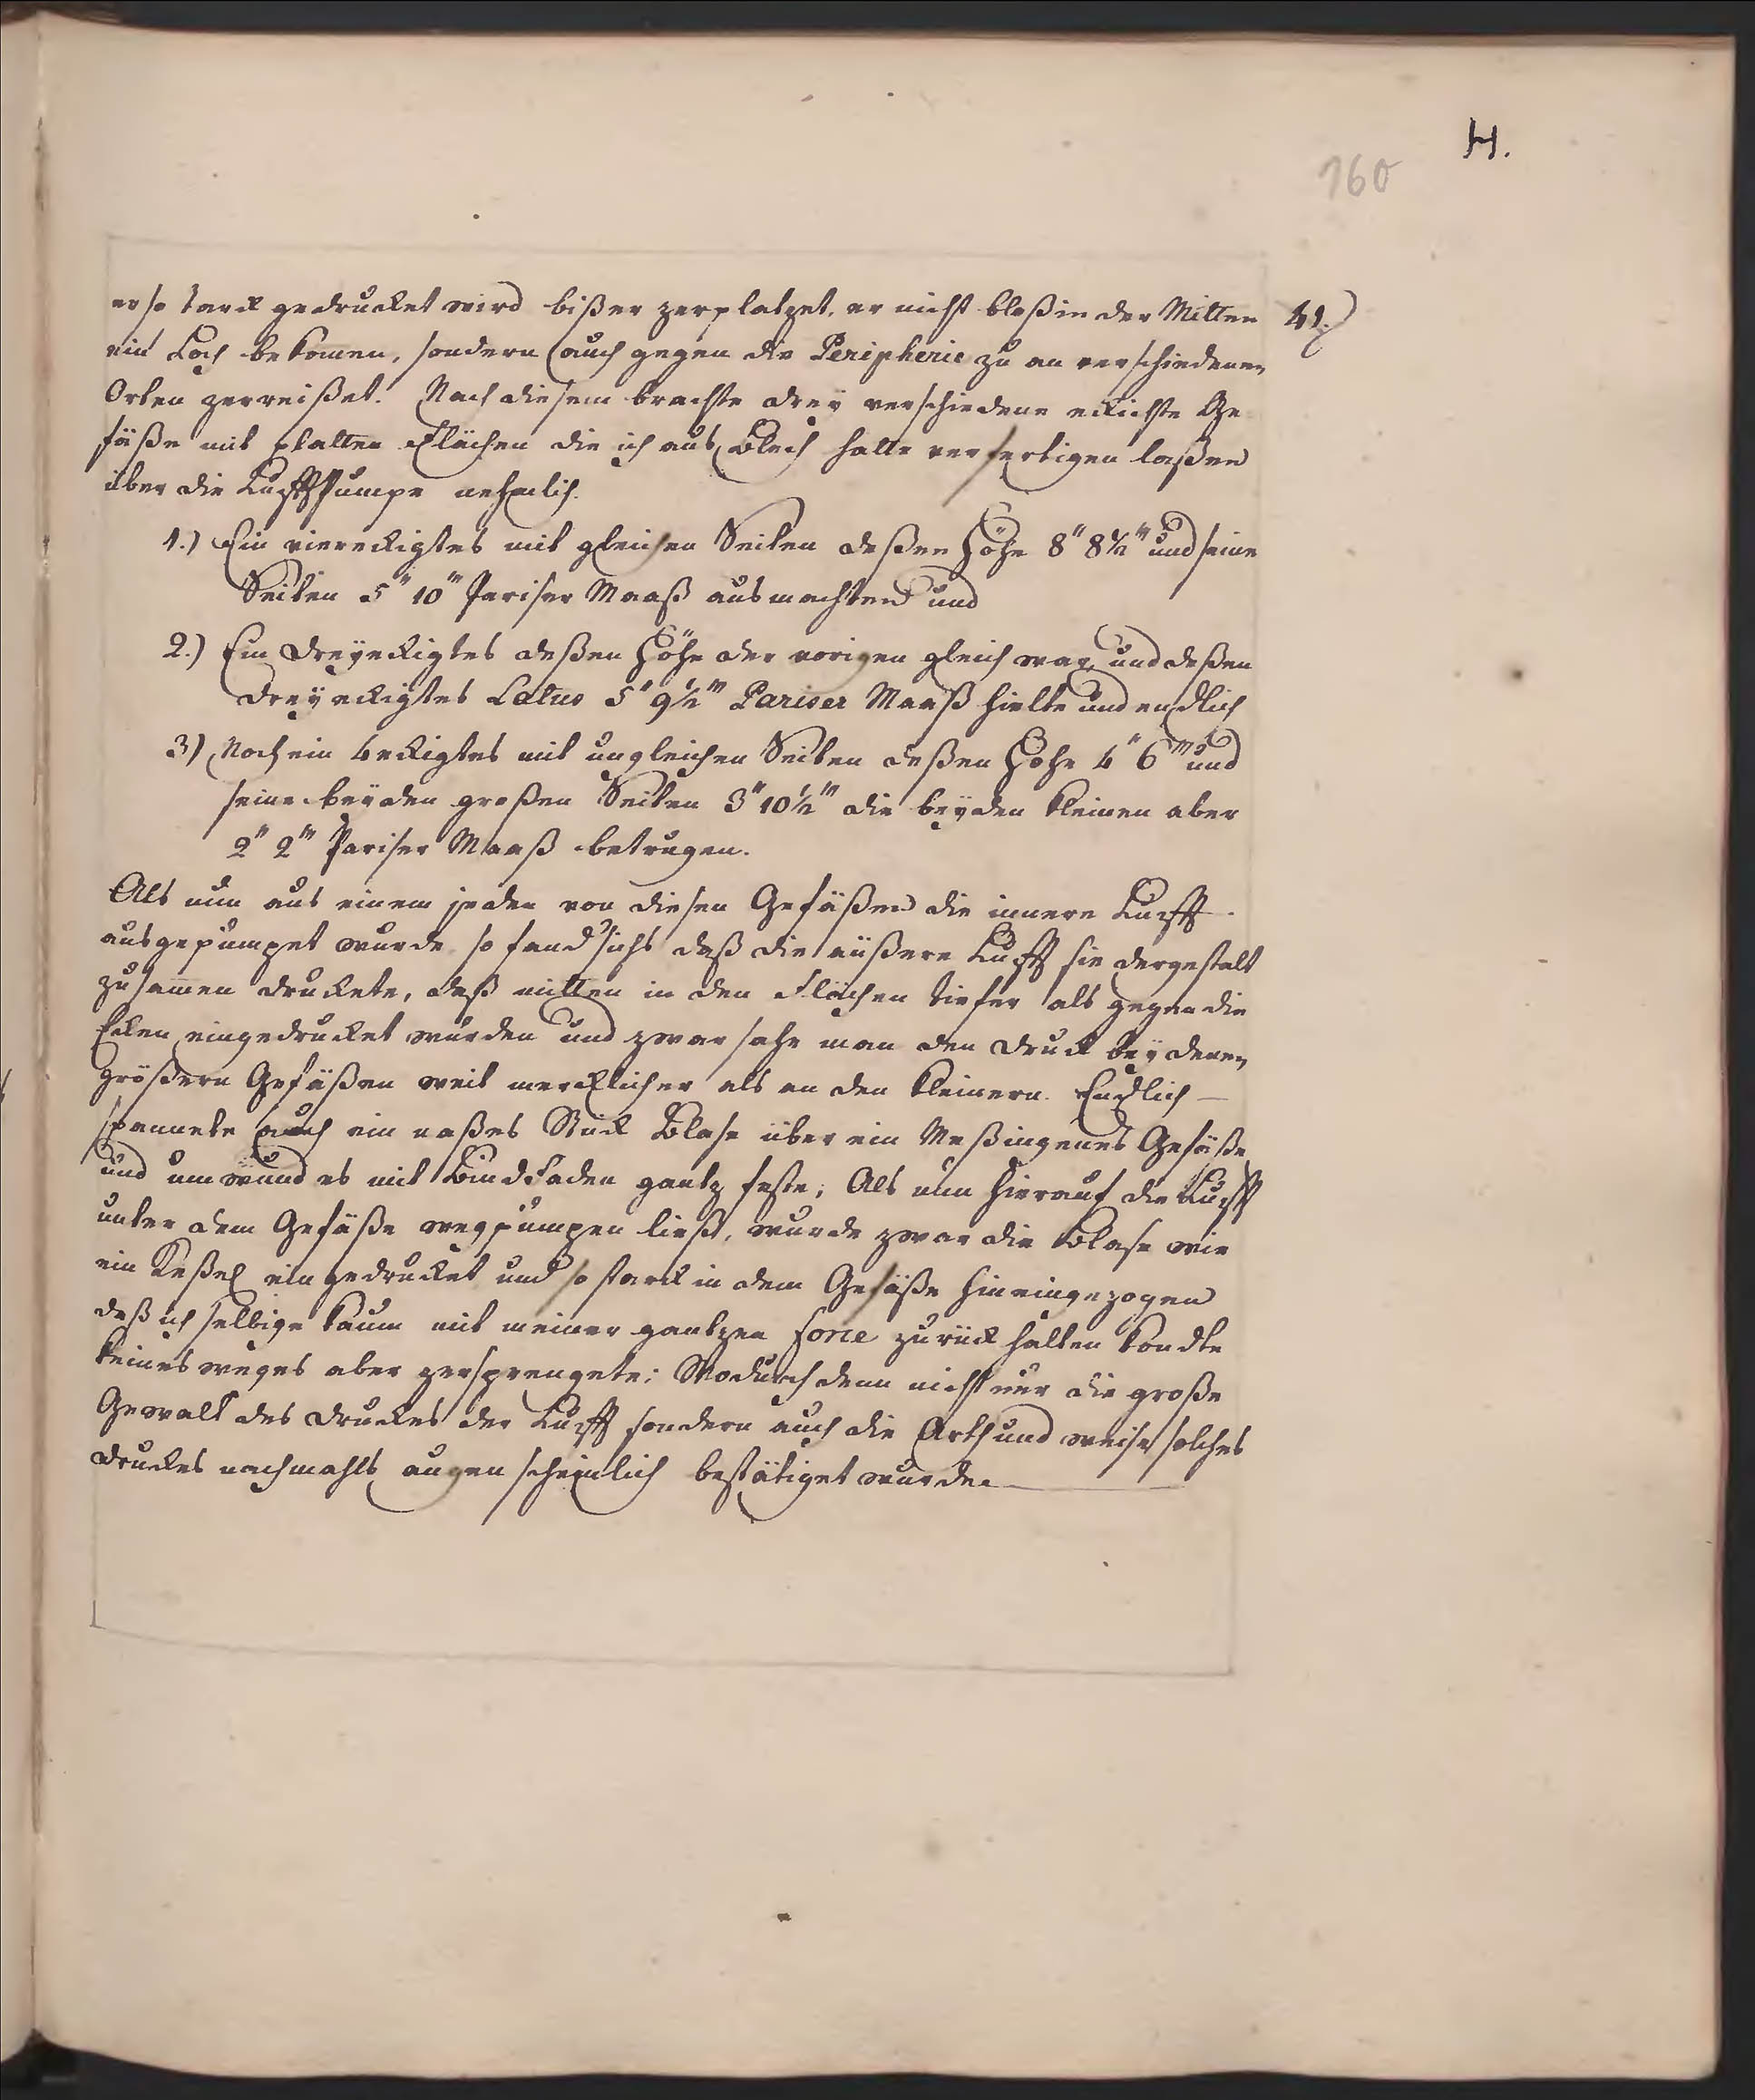 H.
160
er so starck gedrucket wird bißer zerplatzet, er nicht bloß in der Mitten
ein Loch bekomen, sondern auch gegen die Peripherie zu an verschiedenen
Orten zerreißet. Nach diesem brachte drey verschiedene eckichte Ge
fäße mit platten Flächen die ich aus Blech hatte verfertigen laßen
über die LufftPumpe nehmlich.
1.) Ein viereckigtes mit gleichen Seiten deßen Höhe 8" 8½''' und seine
Seiten 5" 10''' Pariser Maaß ausmachten und
2.) Ein dreyeckigtes deßen Höhe der vorigen gleich war und deßen
dreyeckigtes Latus 5" 9½''' Pariser Maaß hielte und endlich
3) Noch ein 4eckigtes mit ungleichen Seiten deßen Höhe 4" 6''' und
seine beyden großen Seiten 3" 10½''' die beyden kleinen aber
2" 2''' Pariser Maaß betrugen.
Als nun aus einem jeden von diesen Gefäßen die innere Lufft
ausgepumpet wurde so fand sichs daß die äüßere Lufft sie dergestalt
zusammen druckete, daß mitten in den Flächen tiefer als gegen die
Ecken eingedrucket wurden und zwar sahe man den Druck bey denen
größern Gefäßen weit mercklicher als an den kleinern. Endlich
spannete auch ein naßes Stück Blase über ein Meßingenes Gefäße
und umwund es mit Bindfaden gantz feste; Als nun hierauf die Lufft
unter dem Gefäße wegpumpen ließ, wurde zwar die Blase wie
ein Keßel eingedrucket und so starck in dem Gefäße hineingezogen
daß ich selbige kaum mit meiner gantzen force zurück halten kondte
keinesweges aber zersprengete; Wodurch denn nicht nur die große
Gewalt des Druckes der Lufft sondern auch die Arth und weise solches
Druckes nachmahls augenscheinlich bestätiget wurde